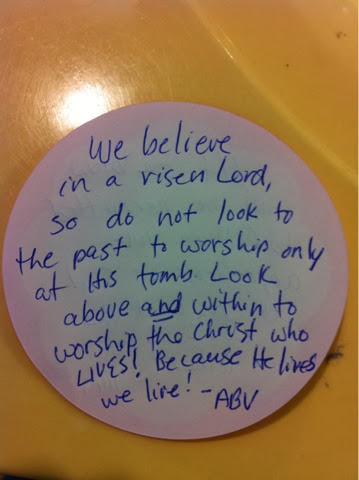 We believe
in a risen Lord,
so do not look to
the past to worship only
at His tomb. Look
above and within to
worship the Christ who
LIVES! Because He lives
we live! - ABV